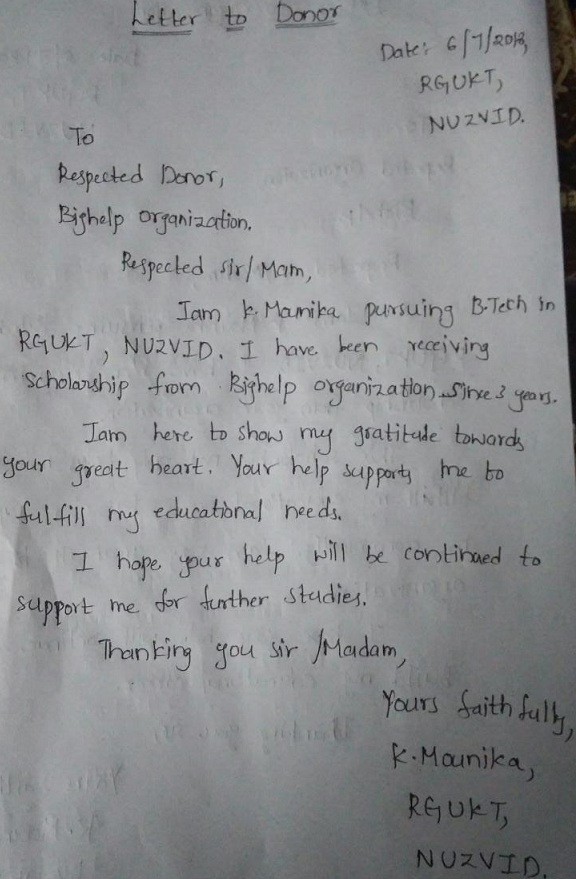 Letter to Donor
Date: 6/7/2018,
RGUKT,
NUZVID.
To
Respected Donor,
Bighelp organization.
Respected sir/Mam,
Iam K. Mounika pursuing B.Tech in
RGUKT, NUZVID. I have been receiving
scholarship from Bighelp organization since 3 years.
Iam here to show my gratitude towards
your great heart. Your help supports me to
fulfill my educational needs.
I hope your help will be continued to
support me for further studies.
Thanking you sir /Madam,
Yours faithfully,
K. Mounika,
RGUKT,
NUZVID.